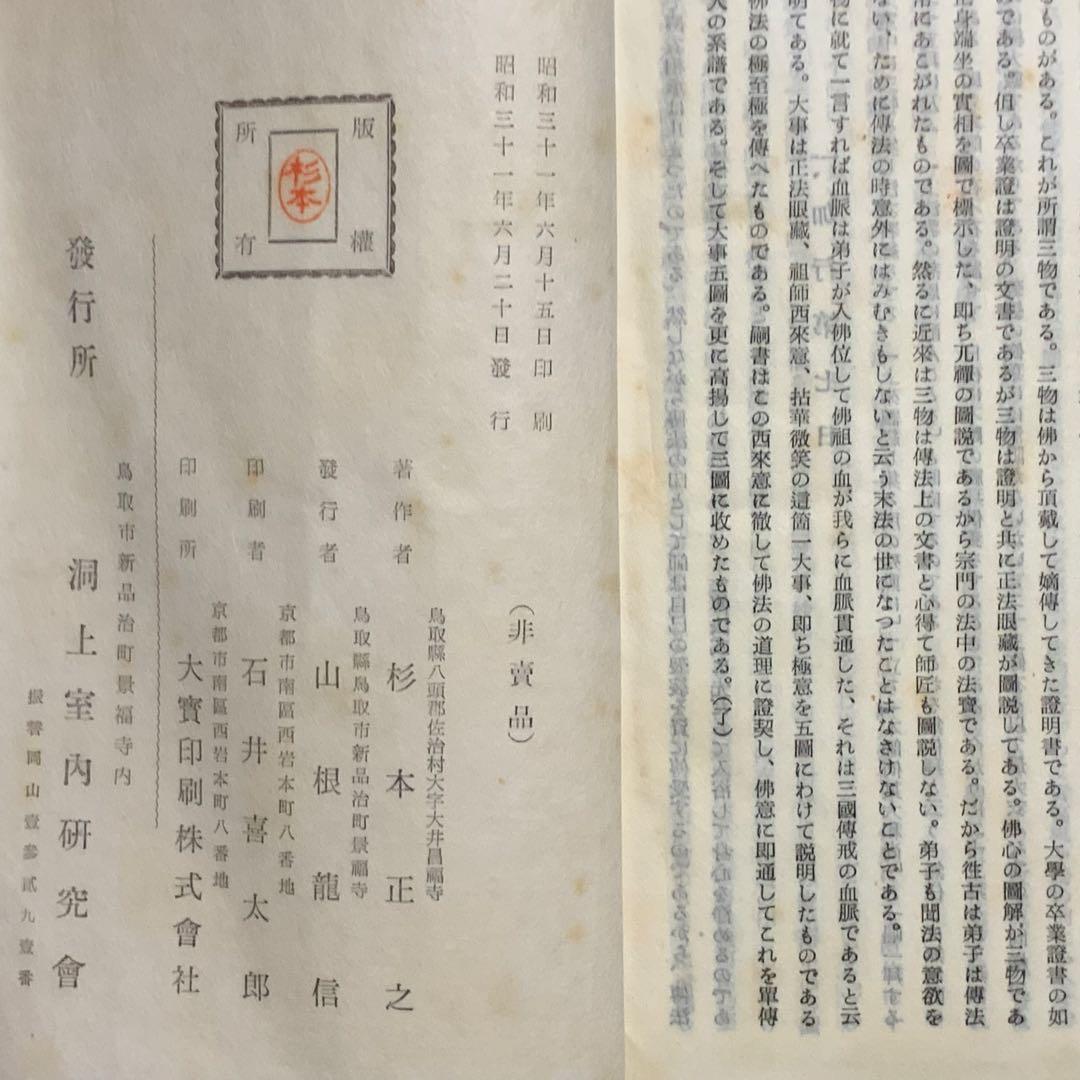 るものがある。これが所謂三物である。三物は佛から頂戴して嫡傳してきた證明書である。大學の卒業證書の如
みである。但し卒業證は證明の文書であるが三物は證明と共に正法眼藏が圖説してある。佛心の圖解が三物であ
身端坐の實相を圖で標示した、即ち兀禪の圖説であるから宗門の法中の法寶である。だから徃古は弟子は傳法
にあこがれたものである。然るに近來は三物は傳法上の文書と心得て師匠も圖説しない。弟子も聞法の意欲を
ない、ために傳法の時意外にはみむきもしないと云う末法の世になつたことはなさけないことである。
物に就て一言すれば血脈は弟子が入佛位して佛祖の血が我らに血脈貫通した、それは三國傳戒の血脈であると云
明てある。大事は正法眼藏、祖師西來意、拈華微笑の這箇一大事、即ち極意を五圖にわけて説明したものである
佛法の極至極を傳へたものである。嗣書はこの西來意に徹して佛法の道理に證契し、佛意に即通してこれを單傳
人の系譜である。そして大事五圖を更に高揚して三圖に收めたものである。(了)
昭和三十一年六月十五日印刷
昭和三十一年六月二十日發行
(非賣品)
版權
所有
杉本
鳥取縣八頭郡佐治村大字大井昌福寺
著作者 杉本正之
鳥取縣鳥取市新品治町景福寺
發行者 山根龍信
京都市南區西岩本町八番地
印刷者 石井喜太郎
京都市南區西岩本町八番地
印刷所 大寳印刷株式會社
鳥取市新品治町景福寺内
發行所 洞上室内研究會
振替岡山壹參貳九壹番